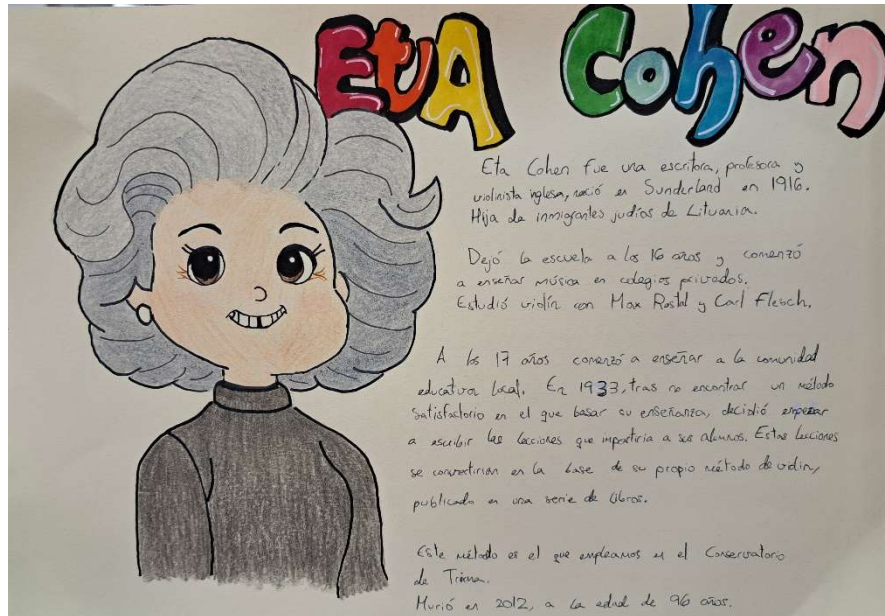 EtA Cohen
Eta Cohen fue una escritora, profesora y
violinista inglesa, nació en Sunderland en 1916.
Hija de inmigrantes judíos de Lituania.
Dejó la escuela a los 16 años y comenzó
a enseñar música en colegios privados.
Estudió violín con Max Rostal y Carl Flesch.
A los 17 años comenzó a enseñar a la comunidad
educativa local. En 1933, tras no encontrar un método
satisfactorio en el que basar su enseñanza, decidió empezar
a escribir las lecciones que impartiria a sus alumnos. Estas lecciones
se convertirían en la base de su propio método de violin,
publicado en una serie de libros.
Este método es el que empleamos en el Conservatorio
de Triana.
Murió en 2012, a la edad de 96 años.